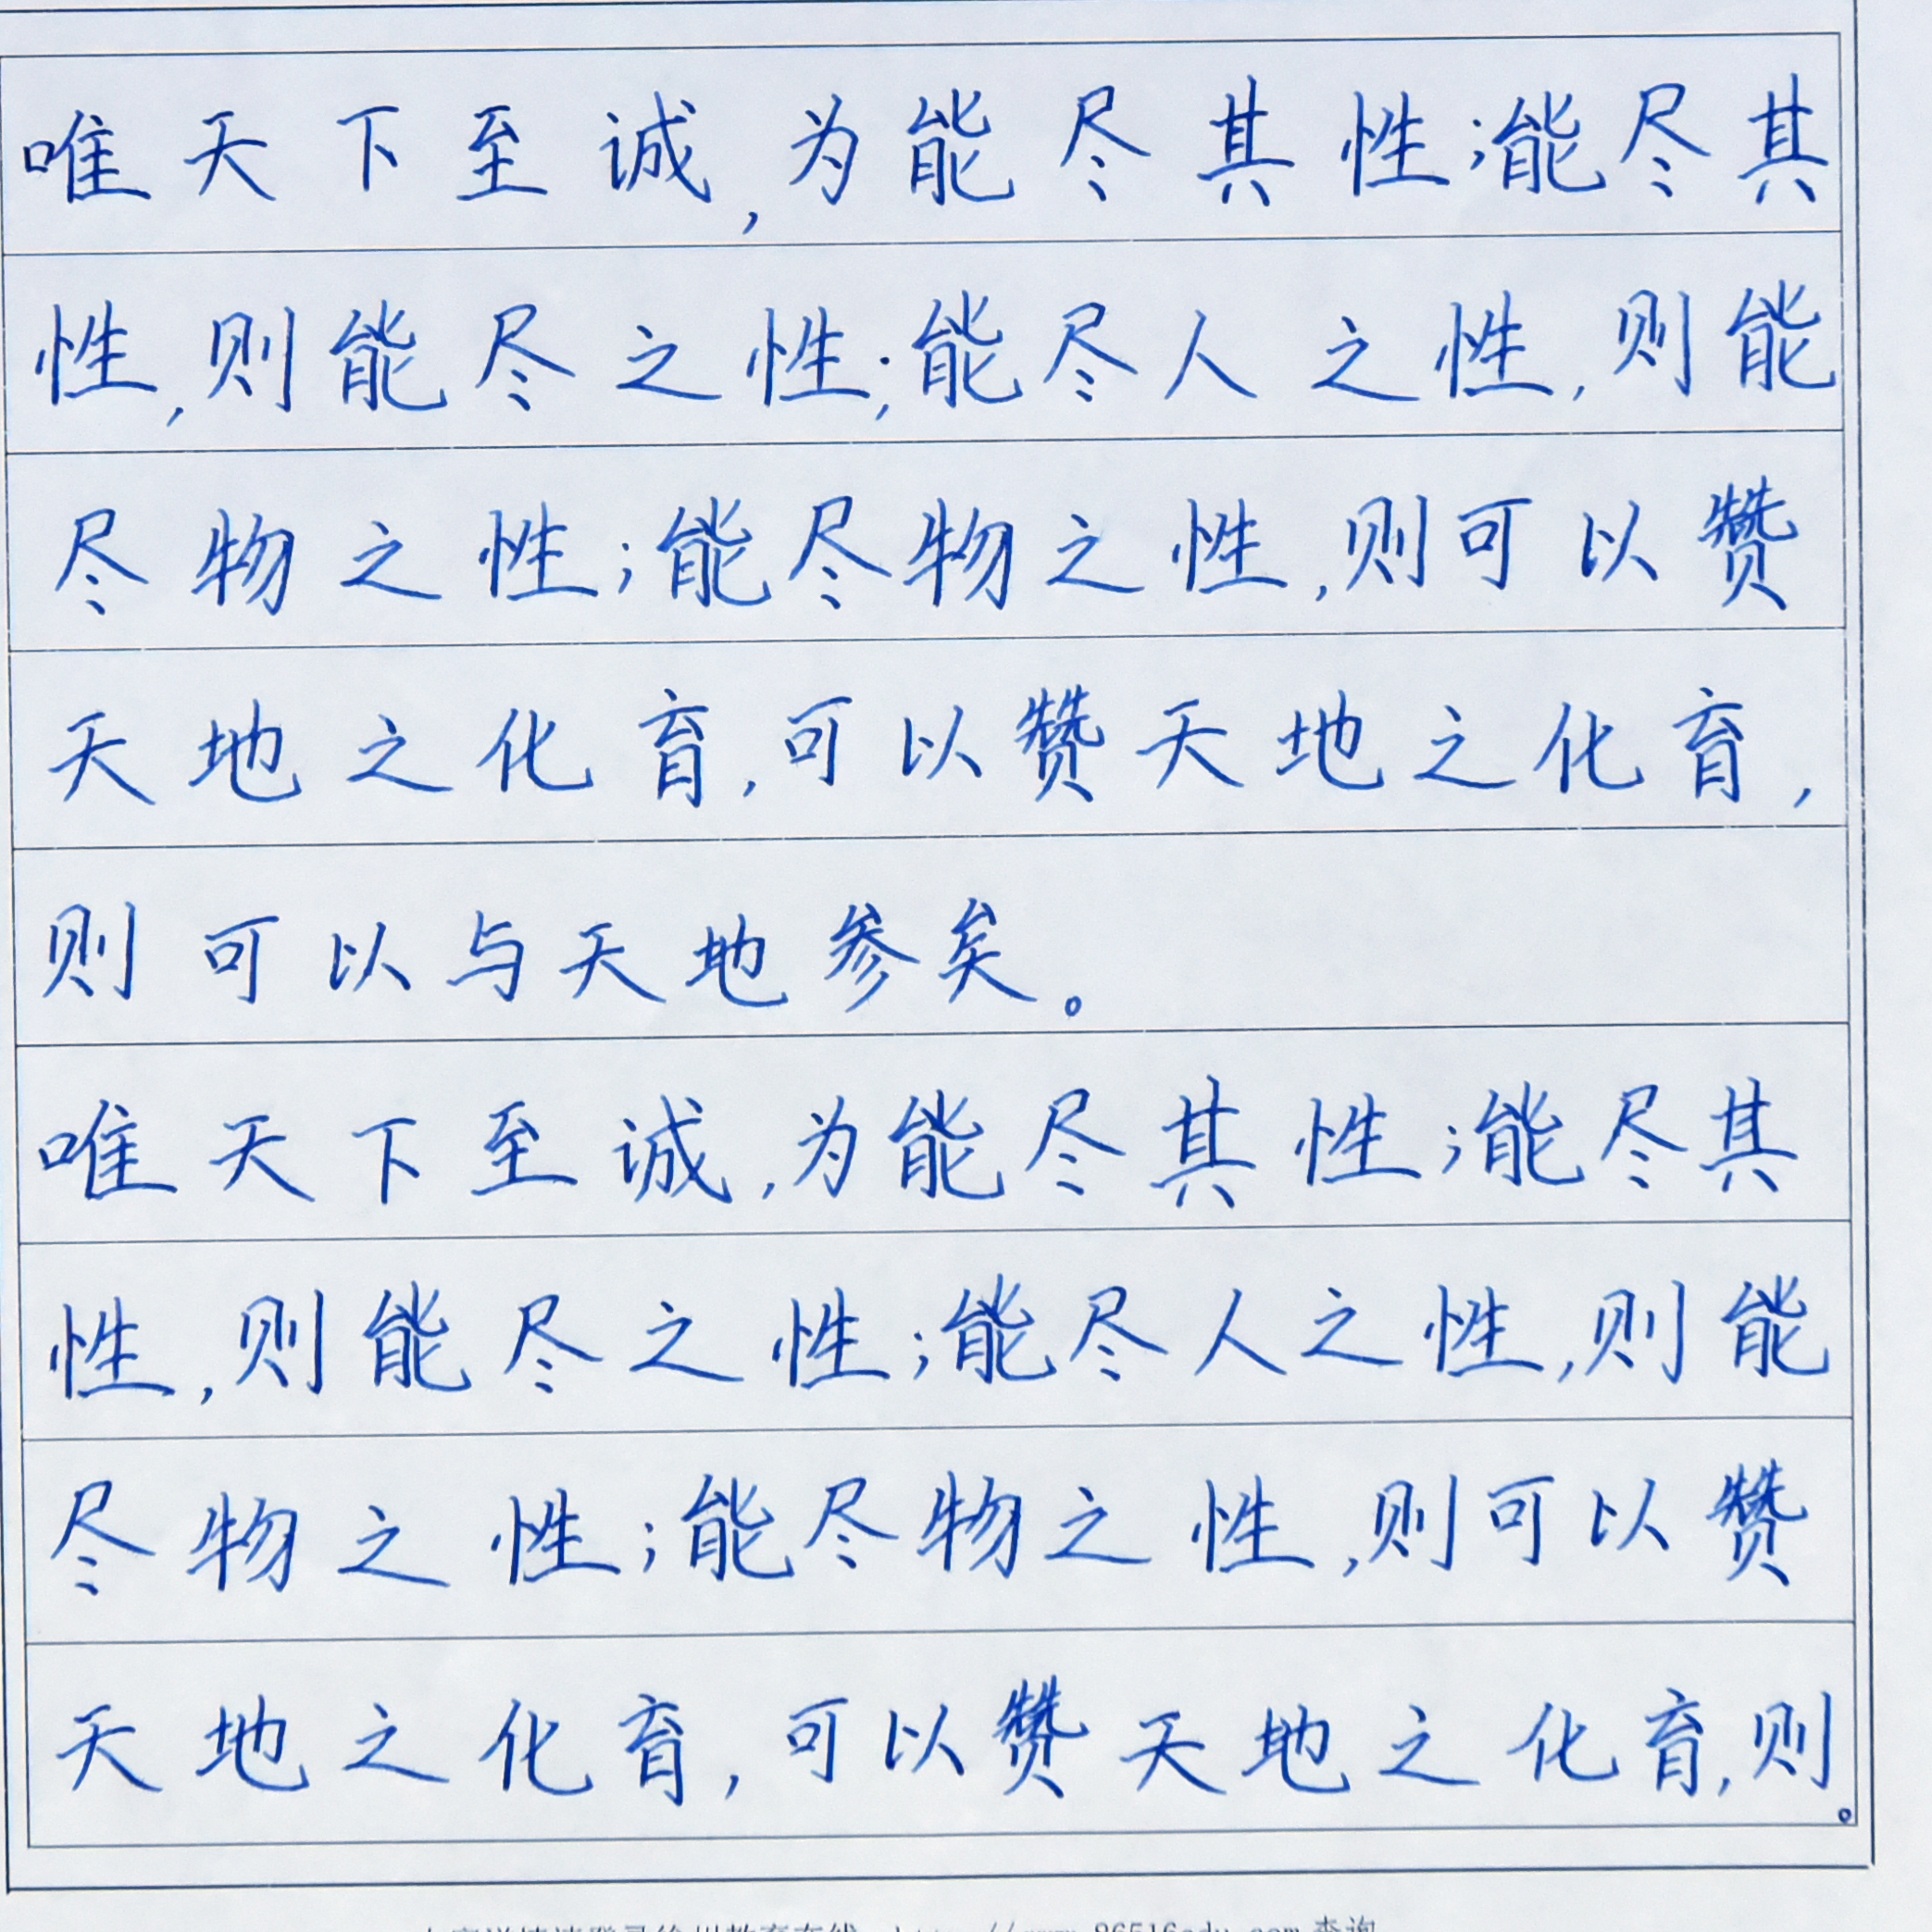 唯天下至诚,为能尽其性;能尽其
性,则能尽之性;能尽人之性,则能
尽物之性;能尽物之性,则可以赞
天地之化育,可以赞天地之化育,
则可以与天地参矣。
唯天下至诚,为能尽其性;能尽其
性,则能尽之性;能尽人之性,则能
尽物之性;能尽物之性,则可以赞
天地之化育,可以赞天地之化育,则。